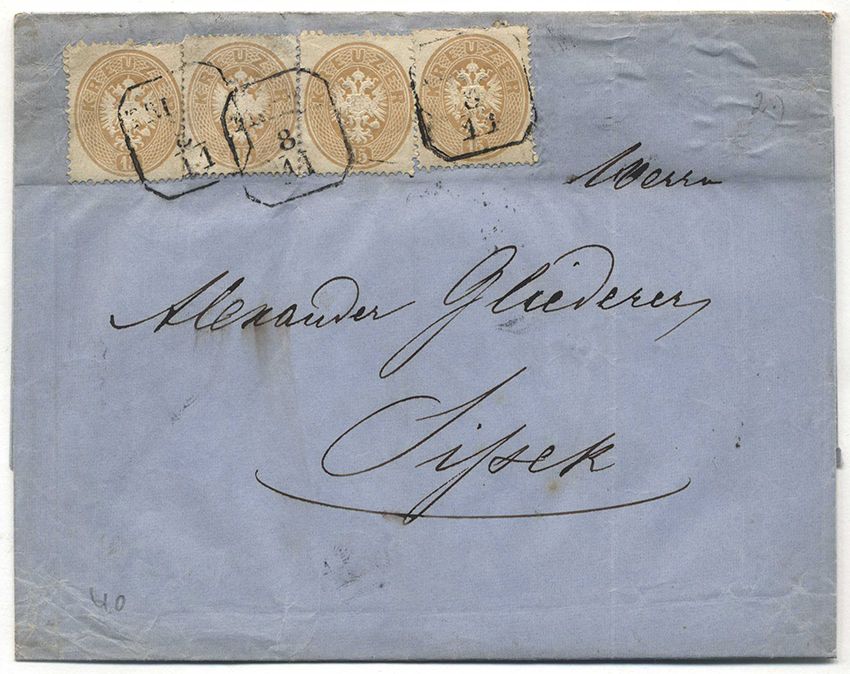 KREUZER KREUZER KREUZER KREUZER
8
11
8
11
11
Herrn
Alexander Gliederer
Sissek
40